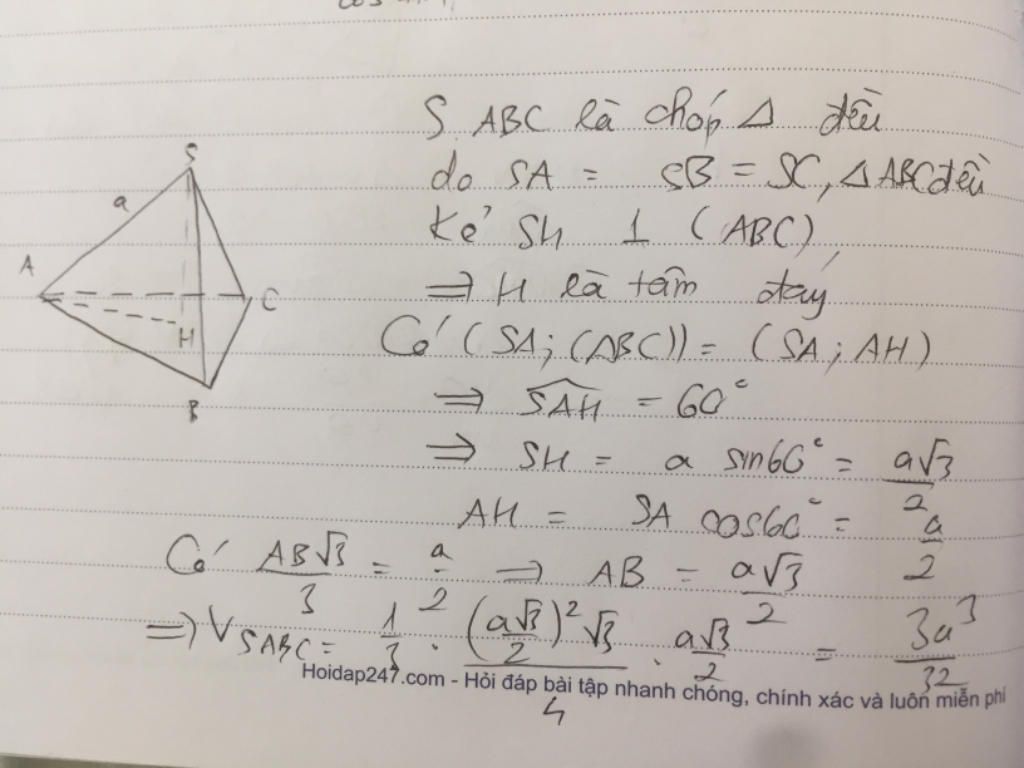 S.ABC là chóp Δ đều
do SA = SB = SC, Δ ABC đều
Kẻ SH ⊥ (ABC)
⇒ H là tâm đáy
Có (SA; (ABC)) = (SA; AH)
⇒ \widehat{SAH} = 60°
⇒ SH = a sin60° = \frac{a√3}{2}
AH = SA cos60° = \frac{a}{2}
Có \frac{AB√3}{3} = \frac{a}{2} ⇒ AB = \frac{a√3}{2}
⇒ V_{SABC} = \frac{1}{3} \cdot \frac{(\frac{a√3}{2})^2 √3}{4} \cdot \frac{a√3}{2} = \frac{3a^3}{32}
S
a
A
C
H
B
Hoidap247.com - Hỏi đáp bài tập nhanh chóng, chính xác và luôn miễn phí